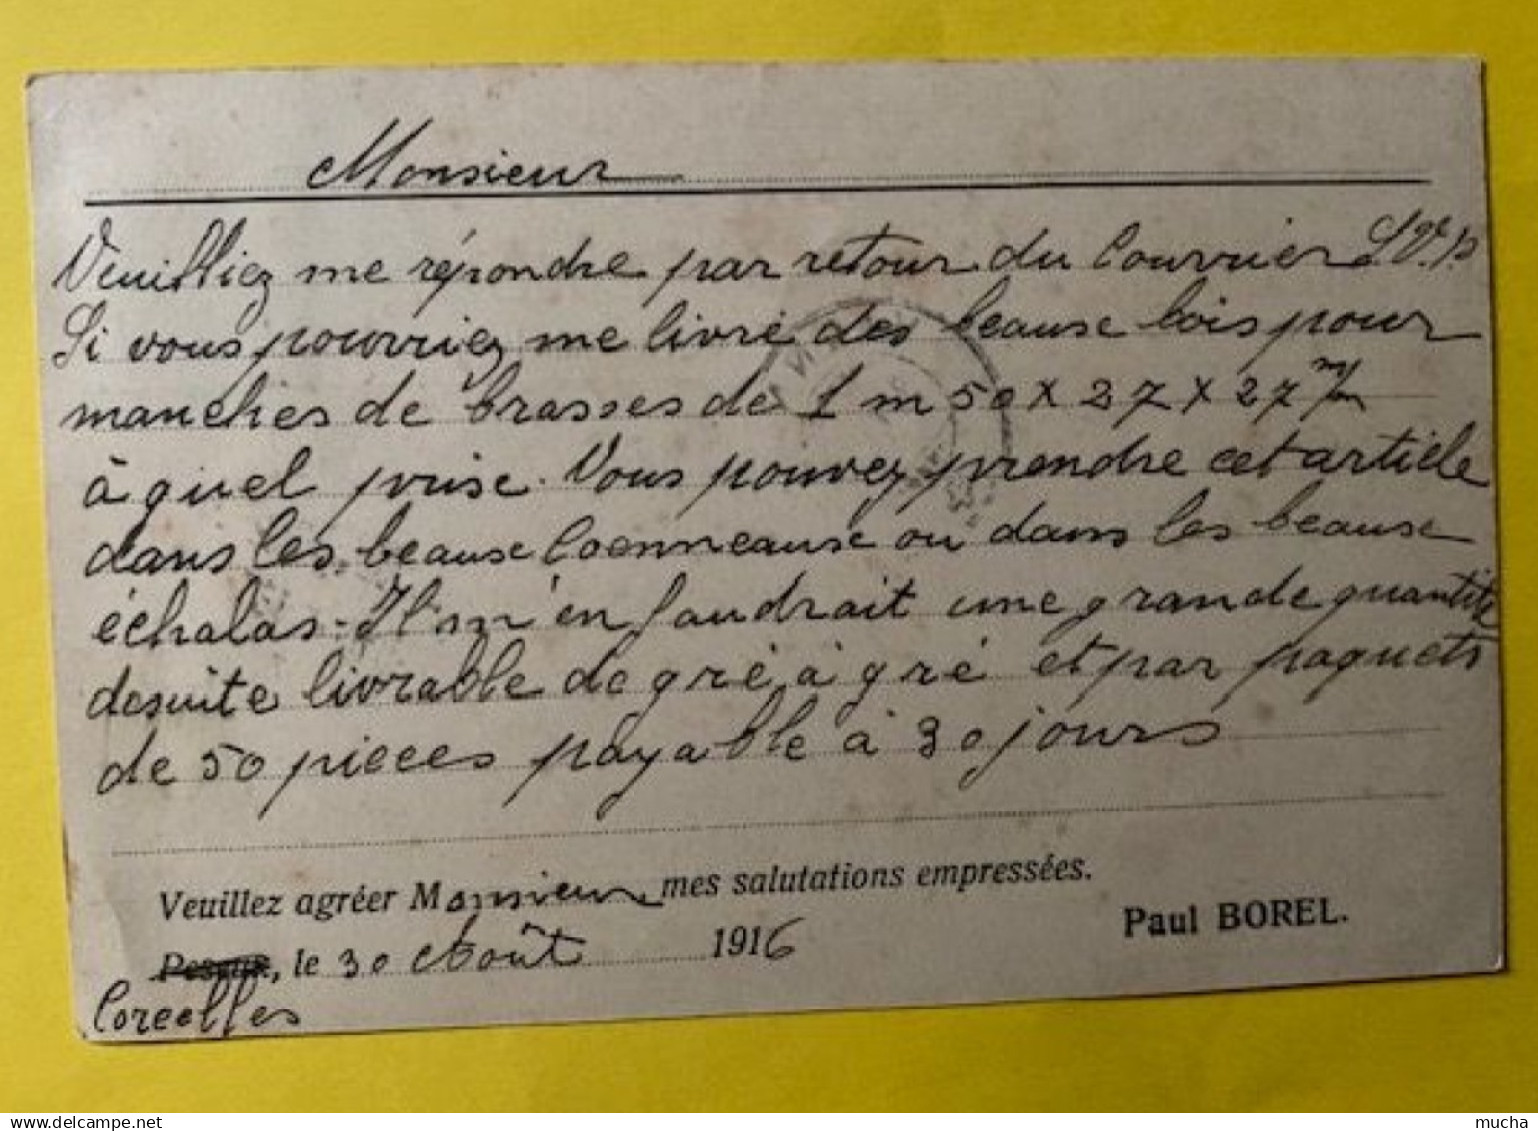 Monsieur
Veuilliez me répondre par retour du Courrier S.V.P.
Si vous pouvriez me livré des beause bois pour
manches de brasses de 1 m 50 x 27 x 27 m/m
à quel prise. Vous pouvez prendre cet article
dans les beause ou dans les beause
échalas. Il m'en faudrait une grande quantité
desuite livrable de gré à gré et par paquets
de 50 pieces payable à 30 jours
Veuillez agréer Monsieur mes salutations empressées.
Paul BOREL.
Peseux, le 30 Août 1916
Corcelles
www.delcampe.net
mucha